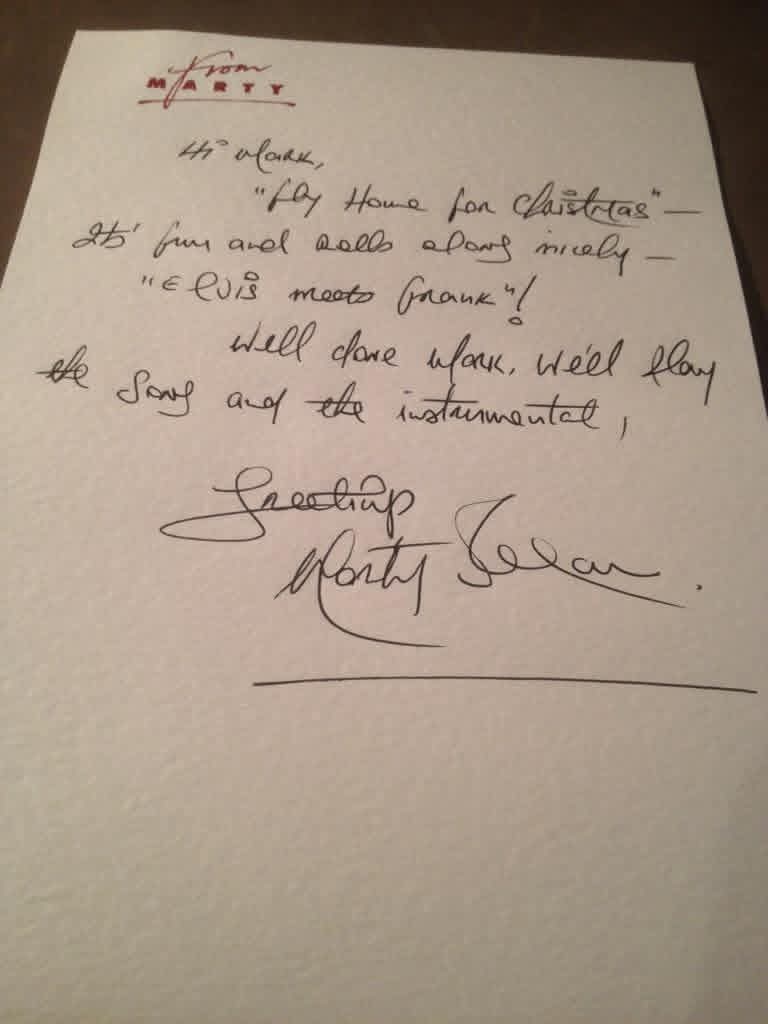 From
MARTY
Hi Mark,
"Fly Home for Christmas" —
Its' fun and rolls along nicely —
"Elvis meets Frank"!
Well done Mark. We'll play
the song and the instrumental,
Greetings
Marty